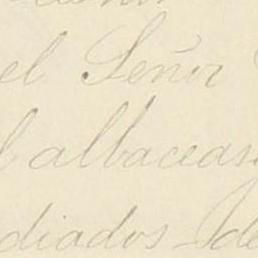 el Señor
albaceas
diados de